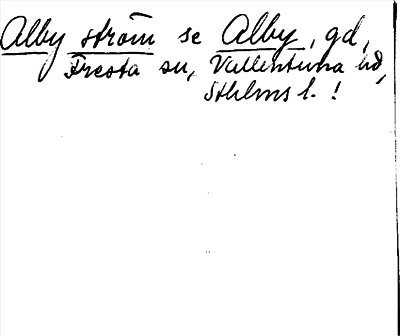 Alby ström se Alby, gd,
Fresta sn, Vallentuna hd,
Sthlms l. !